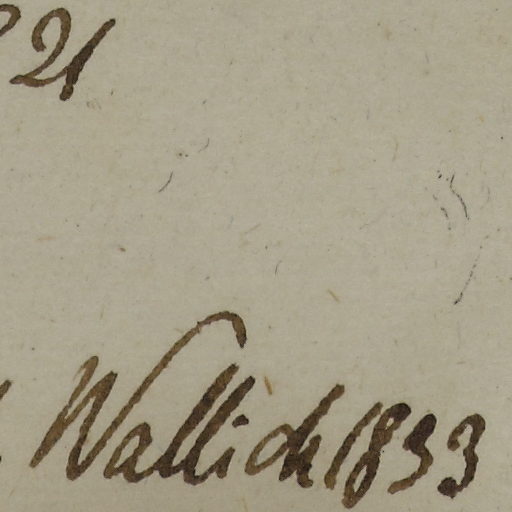 21
Wallich 1833